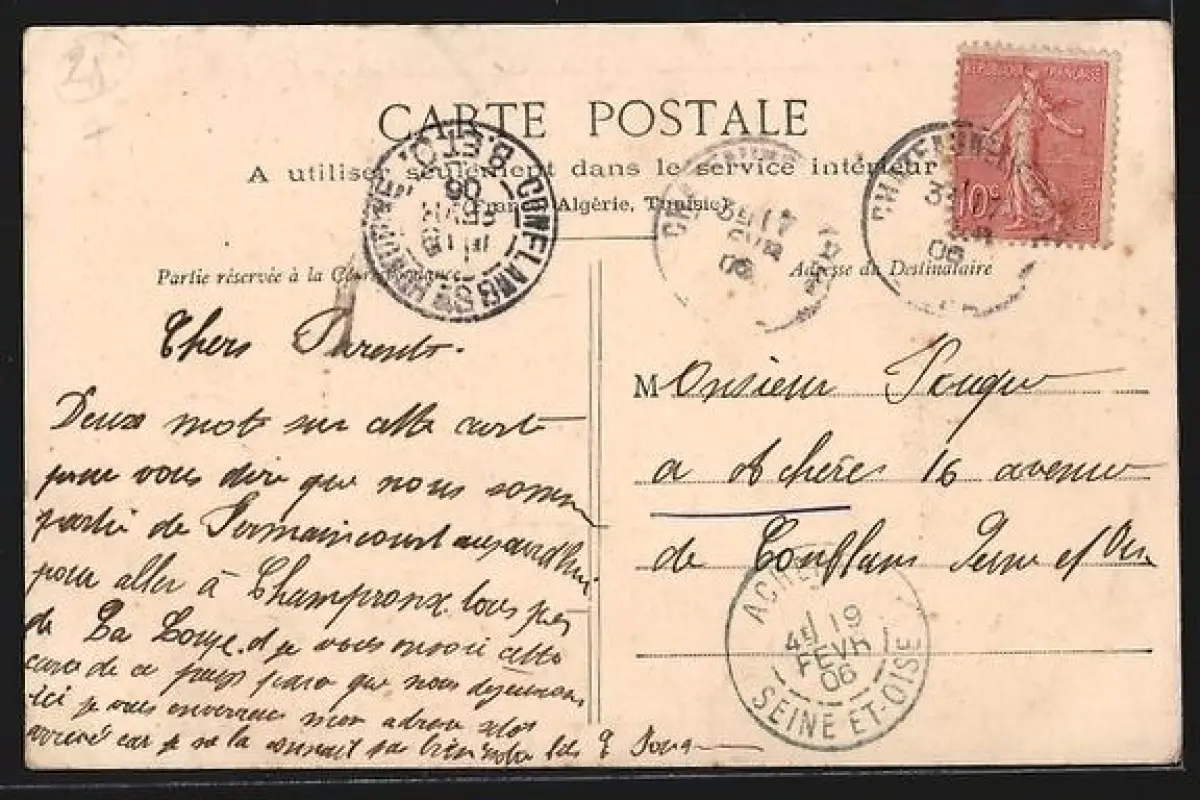 21
CARTE POSTALE
A utiliser seulement dans le service intérieur
(France, Algérie, Tunisie)
REPUBLIQUE FRANÇAISE
10c
CONFLANS Ste HONORINE
S. ET O.
FEVR
06
17
06
3
06
Partie réservée à la Correspondance
Adresse du Destinataire
Chers Parents.
Deux mots sur cette carte
pour vous dire que nous somm
partie de Germaincourt aujourd'hui
pour aller à Champronx tous près
de La Loupe. et je vous envoie cette
carte de ce pays parce que nous dejeunons
ici je vous enverrais mon adresse
arrivé car je ne la connait pas
Monsieur
a Achères 16 avenue
de Conflans Seine et Oise
ACHERES
19
FEVR
06
SEINE-ET-OISE